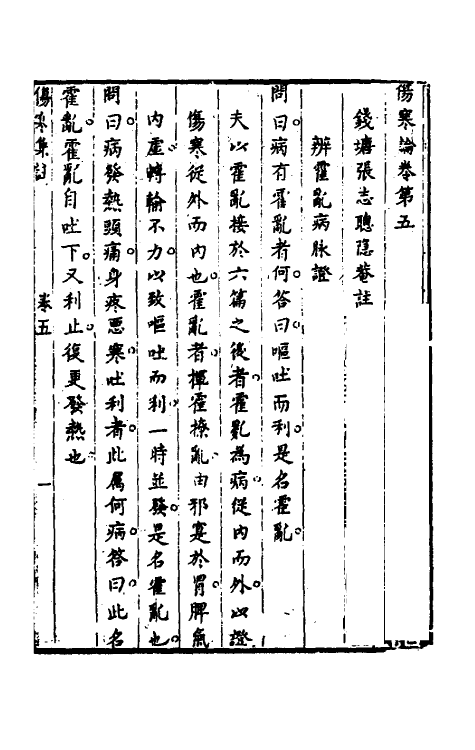 傷寒論卷第五
錢塘張志聰隱菴註
辨霍亂病脉證
問曰病有霍亂者何答曰嘔吐而利是名霍亂
夫以霍亂接於六篇之後者霍亂為病從內而外以證
傷寒從外而內也霍亂者揮霍撩亂由邪寔於胃脾氣
內虛轉輸不力以致嘔吐而利一時並發是名霍亂也
問曰病發熱頭痛身疼惡寒吐利者此属何病答曰此名
霍亂霍亂自吐下又利止復更發熱也
傷寒集註 卷五 一